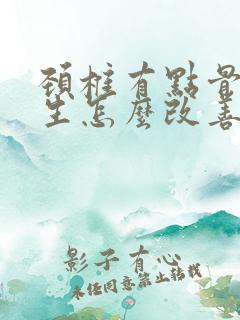 頸椎有點骨質增
生怎麼改善
影子有心
未經同意禁止轉載